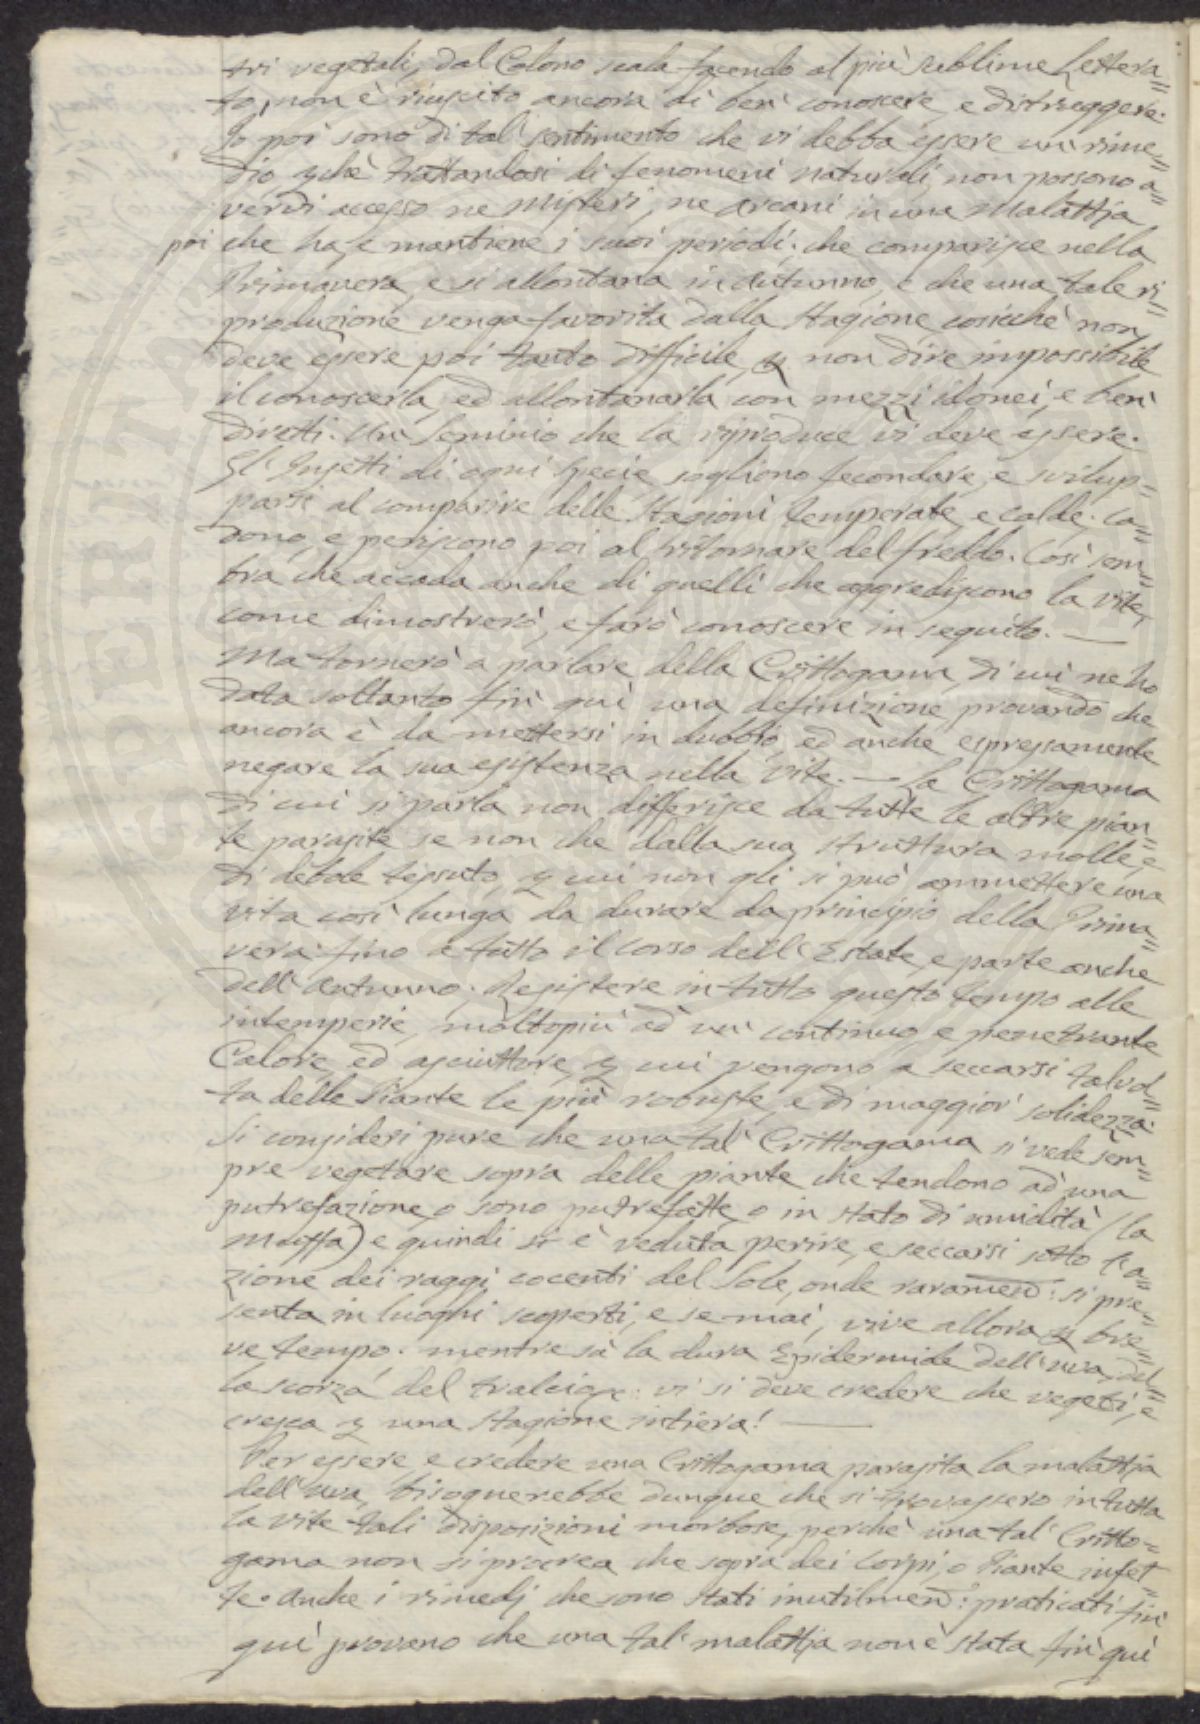 tri vegetali, dal Colono scala facendo al più sublime Lettera=
to, non è riuscito ancora di ben conoscere, e distruggere.
Io poi sono di tal sentimento che vi debba essere un rime=
dio, perchè trattandosi di fenomeni naturali, non possono a=
vervi accesso ne Misteri, ne Arcani in una Malattia
poi che ha, e mantiene i suoi periodi; che comparisce nella
Primavera, e si allontana in Autunno, e che una tale ri=
produzione venga favorita dalla Stagione, cosicchè non
deve essere poi tanto difficile, per non dire impossibile
il conoscerla, ed allontanarla con mezzi idonei, e ben
diretti. Un Seminio che la riproduce vi deve essere.
Gl'Insetti di ogni specie sogliono fecondare, e svilup=
parsi al comparire delle Stagioni temperate, e calde. Ca=
dono, e periscono poi al ritornare del freddo. Così sem=
bra che accada anche di quelli che aggrediscono la Vite,
come dimostrerò, e farò conoscere in seguito. —
Ma tornerò a parlare della Crittogama, di cui ne ho
data soltanto fin qui una definizione, provando che
ancora è da mettersi in dubbio, ed anche espressamente
negare la sua esistenza nella Vite. — La Crittogama
di cui si parla non differisce da tutte le altre pian=
te parasite se non che dalla sua struttura molle, e
di debole tessuto, per cui non gli si può ammettere una
vita così lunga da durare da principio della Prima=
vera fino a tutto il corso dell'Estate, e parte anche
dell'Autunno. Resistere in tutto questo tempo alle
intemperie, moltopiù ad un continuo, e penetrante
Calore, ed asciuttore, per cui vengono a seccarsi talvol=
ta delle Piante le più robuste, e di maggior solidezza.
Si consideri pure che una tal Crittogama si vede sem=
pre vegetare sopra delle piante che tendono ad una
putrefazione, o sono putrefatte, o in stato di umidità (la
Muffa) e quindi si è veduta perire, e seccarsi sotto l'a=
zione dei raggi cocenti del Sole, onde raramend: si pre=
senta in luoghi scoperti, e se mai, vive allora per bre=
ve tempo. mentre sù la dura Epidermide dell'uva, del=
la scorza del tralcio: vi si deve credere che vegeti, e
cresca per una Stagione intiera! —
Per essere, e credere una Crittogama parasita la malattia
dell'uva, bisognerebbe dunque che si trovassero in tutta
la vite tali disposizioni morbose, perchè una tal Critto=
gama non si procrea che sopra dei Corpi, o Piante infet=
te. Anche i rimedj che sono stati inutilmend: praticati fin
quì provano che una tal malattia non è stata fin quì